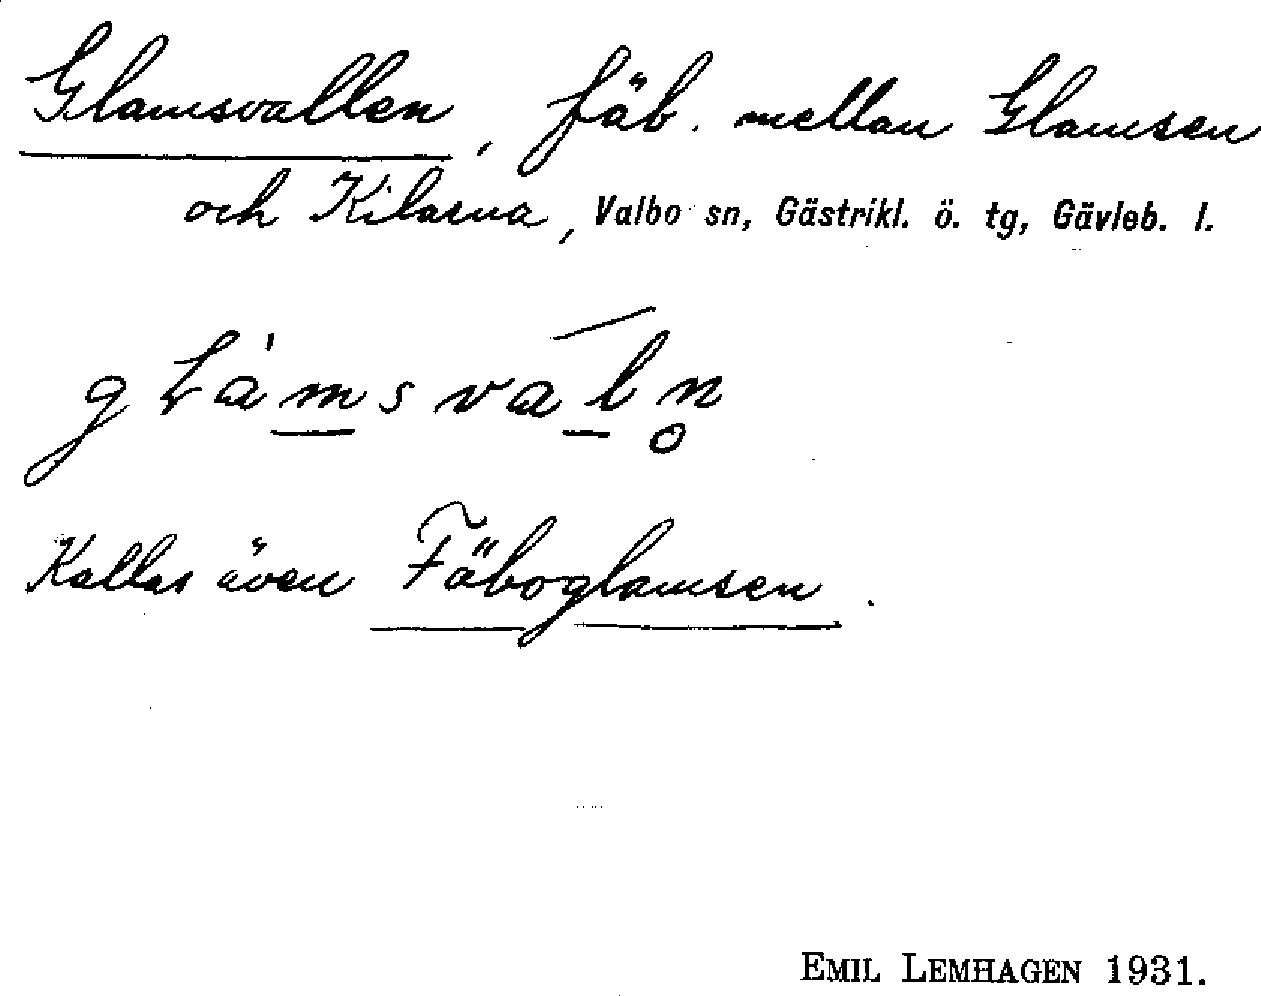 Glamsvallen, fäb. mellan Glamsen
och Kilarna, Valbo sn, Gästrikl. ö. tg, Gävleb. l.
glàm̲svál̲n̥
Kallas även Fäboglamsen.
EMIL LEMHAGEN 1931.